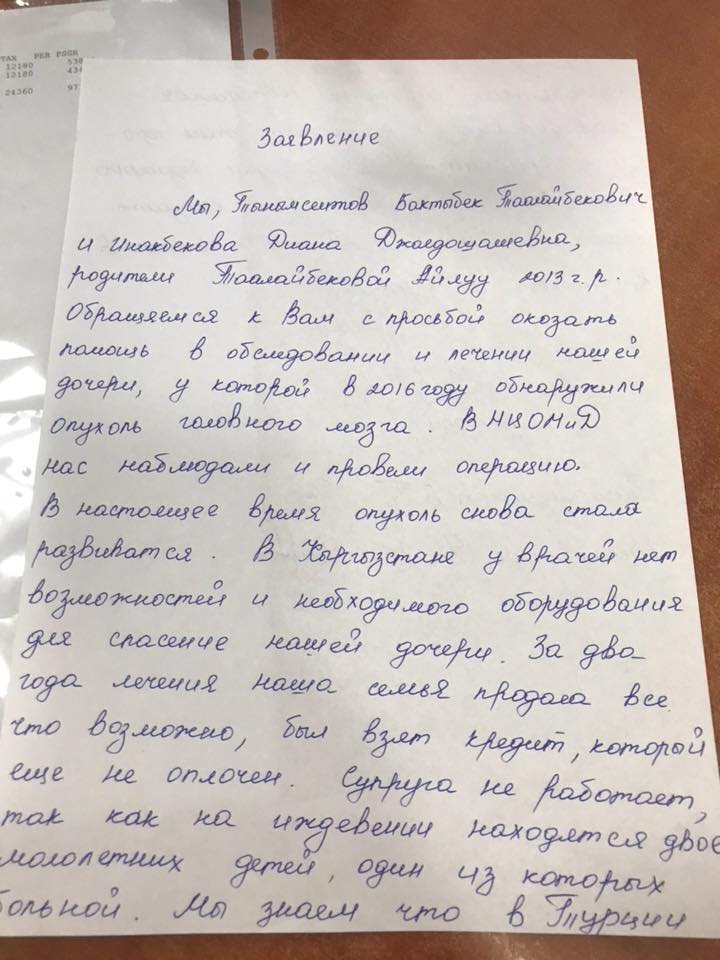 TAX PER PSGR
12180 538
12180 434
24360 97
Заявление
Мы, Тынымсеитов Бактыбек Таалайбекович
и Инакбекова Диана Джолдошалиевна,
родители Таалайбековой Айлуу 2013 г.р.
Обращяемся к Вам с просьбой окозать
помощь в обследовании и лечении нашей
дочери, у которой в 2016 году обнаружили
опухоль головного мозга. В НЦОМиД
нас наблюдали и провели операцию.
В настоящее время опухоль снова стала
развиватся. В Кыргызстане у врачей нет
возможностей и необходимого оборудования
для спасение нашей дочери. За два
года лечения наша семья продала все
что возможно, был взят кредит, который
еще не оплочен. Супруга не работает,
так как на иждевении находятся двое
мололетних детей, один из которых
больной. Мы знаем что в Турции